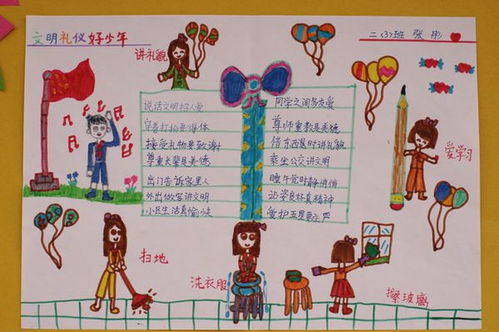 文明礼仪好少年
二(3)班 张彤
讲礼貌
说话文明招人爱
穿着打扮要得体
接受礼物要致谢
尊重长辈是美德
出门告诉家里人
外出做客讲文明
小区生活真愉快
同学之间多友爱
尊师重教是美德
借东西及时讲礼貌
乘坐公交讲文明
睡午觉时静悄悄
站姿良好真精神
爱护五星要庄严
爱学习
扫地
洗衣服
擦玻璃